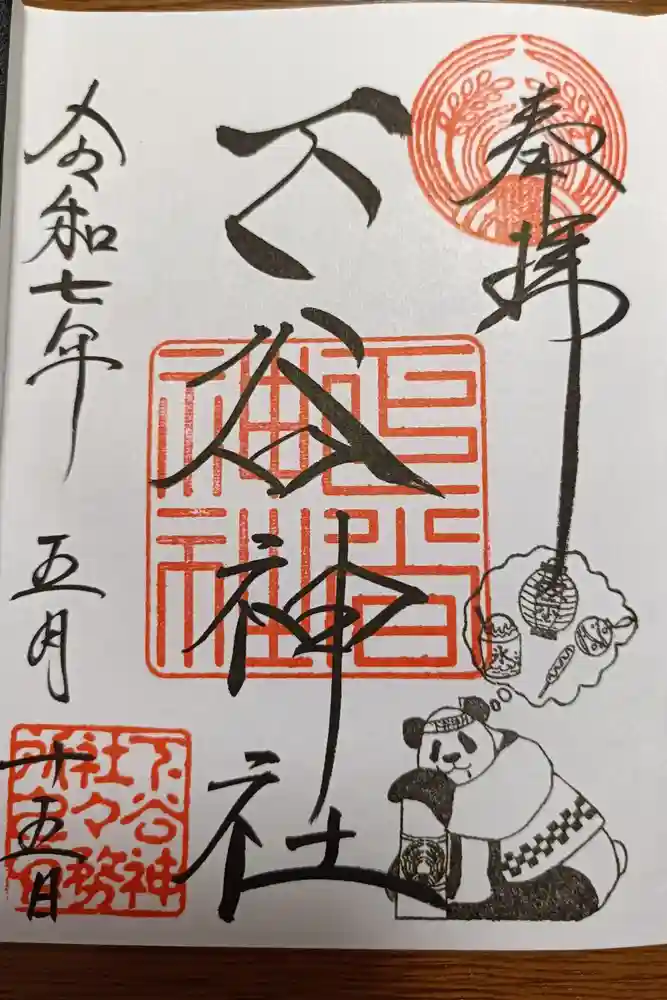 奉拝
下谷神社
令和七年
五月
十五日
下谷神
社々務
所之印
下谷
神社
氷